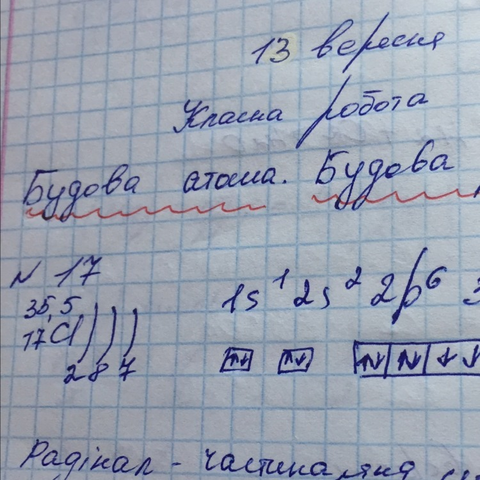 13 вересня
Класна робота
Будова атома. Будова
N 17
35,5
17Cl ) ) )
2 8 7
1s¹ 2s² 2p⁶ 3
↑↓ ↑↓ ↑↓ ↑↓
Радікал - частина, яка